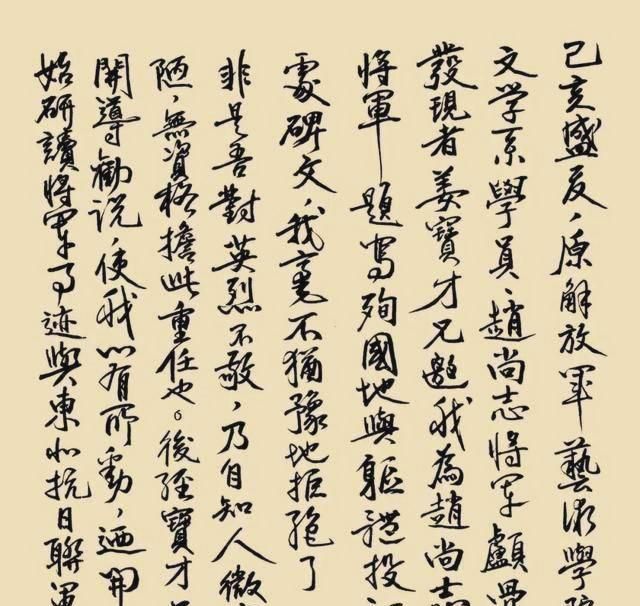 己亥盛夏，原解放軍藝術學院
文学系學員、趙尚志將军顱骨
發現者姜寶才兄邀我為趙尚志
將軍題寫殉國地與軀體投
處碑文，我毫不猶豫地拒絕了
非是吾對英烈不敬，乃自知人微
陋，無資格擔此重任也。後經寶才
開導勸说，使我心有所動，迺開
始研讀將军事迹與東北抗日聯軍